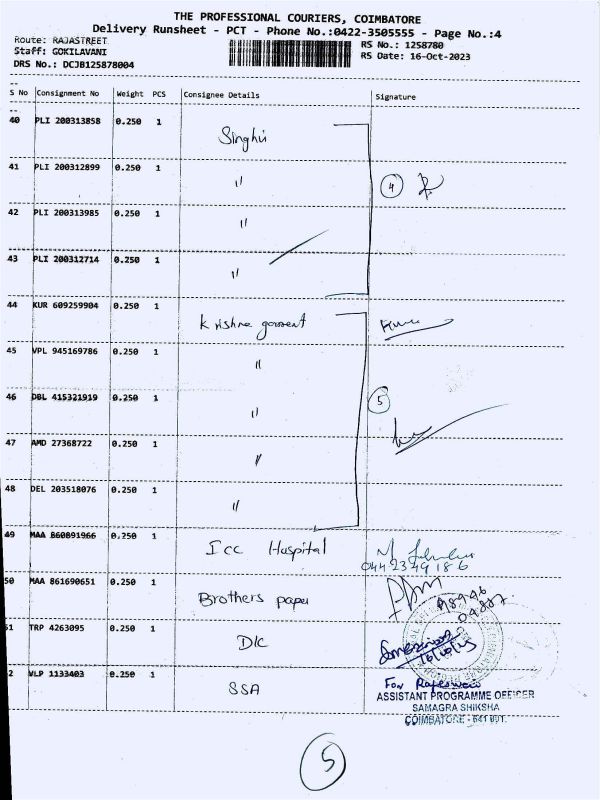 THE PROFESSIONAL COURIERS, COIMBATORE
Delivery Runsheet - PCT - Phone No.:0422-3505555 - Page No.:4
Route: RAJASTREET
RS No.: 1258780
Staff: GOKILAVANI
RS Date: 16-Oct-2023
DRS No.: DCJB125878004
S No Consignment No Weight PCS Consignee Details Signature
40 PLI 200313858 0.250 1 Singhvi
41 PLI 200312899 0.250 1 "
4
42 PLI 200313985 0.250 1 "
43 PLI 200312714 0.250 1 "
44 KUR 609259904 0.250 1 Krishna garment
45 VPL 945169786 0.250 1 "
46 DBL 415321919 0.250 1 "
5
47 AMD 27368722 0.250 1 "
48 DEL 203518076 0.250 1 "
49 MAA 860891966 0.250 1 Icc Hospital
0442349186
50 MAA 861690651 0.250 1 Brothers paper
98946
04887
51 TRP 4263095 0.250 1 DIC
16/10/23
2 VLP 1133403 0.250 1 SSA
For Rajeswari
ASSISTANT PROGRAMME OFFICER
SAMAGRA SHIKSHA
COIMBATORE - 641 001.
5